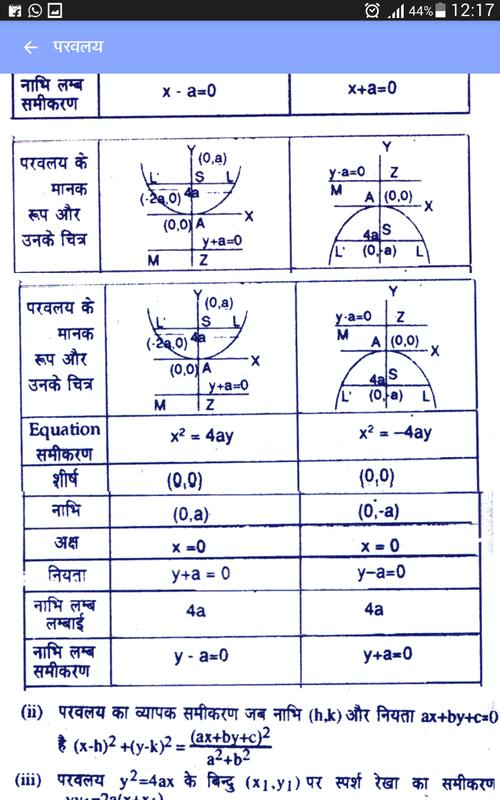 44% 12:17
परवलय
नाभि लम्ब
समीकरण
x - a=0
x+a=0
परवलय के
मानक
रूप और
उनके चित्र
Y
(0,a)
L'
S
L
(-2a,0)
4a
(0,0)
A
X
y+a=0
M
Z
Y
y-a=0
Z
M
A
(0,0)
X
4a
S
L'
(0,-a)
L
परवलय के
मानक
रूप और
उनके चित्र
Y
(0,a)
L'
S
L
(-2a,0)
4a
(0,0)
A
X
y+a=0
M
Z
Y
y-a=0
Z
M
A
(0,0)
X
4a
S
L'
(0,-a)
L
Equation
समीकरण
x² = 4ay
x² = –4ay
शीर्ष
(0,0)
(0,0)
नाभि
(0,a)
(0,-a)
अक्ष
x =0
x = 0
नियता
y+a = 0
y–a=0
नाभि लम्ब
लम्बाई
4a
4a
नाभि लम्ब
समीकरण
y - a=0
y+a=0
(ii) परवलय का व्यापक समीकरण जब नाभि (h,k) और नियता ax+by+c=0
है (x-h)² +(y-k)² = (ax+by+c)²
a²+b²
(iii) परवलय y²=4ax के बिन्दु (x₁,y₁) पर स्पर्श रेखा का समीकरण
yy₁=2a(x+x₁)